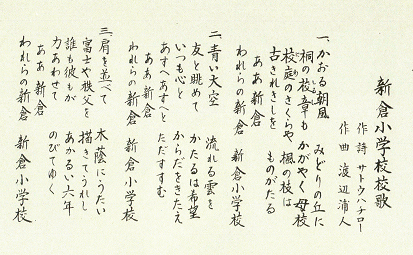 新倉小学校校歌
作詩 サトウハチロー
作曲 渡辺浦人
一、かおる朝風 みどりの丘に
桐の枝章も かがやく母校
校庭のさくらや 楓の枝は
古きれきしを ものがたる
ああ 新倉
われらの新倉 新倉小学校
二、青い大空 流れる雲を
友と眺めて かたるは希望
いつも心と からだをきたえ
あすへあすへと ただすすむ
ああ 新倉
われらの新倉 新倉小学校
三、肩を並べて 木蔭にうたい
富士や秩父を 描きてうれし
誰も彼もが あかるい六年
力あわせて のびてゆく
ああ 新倉
われらの新倉 新倉小学校